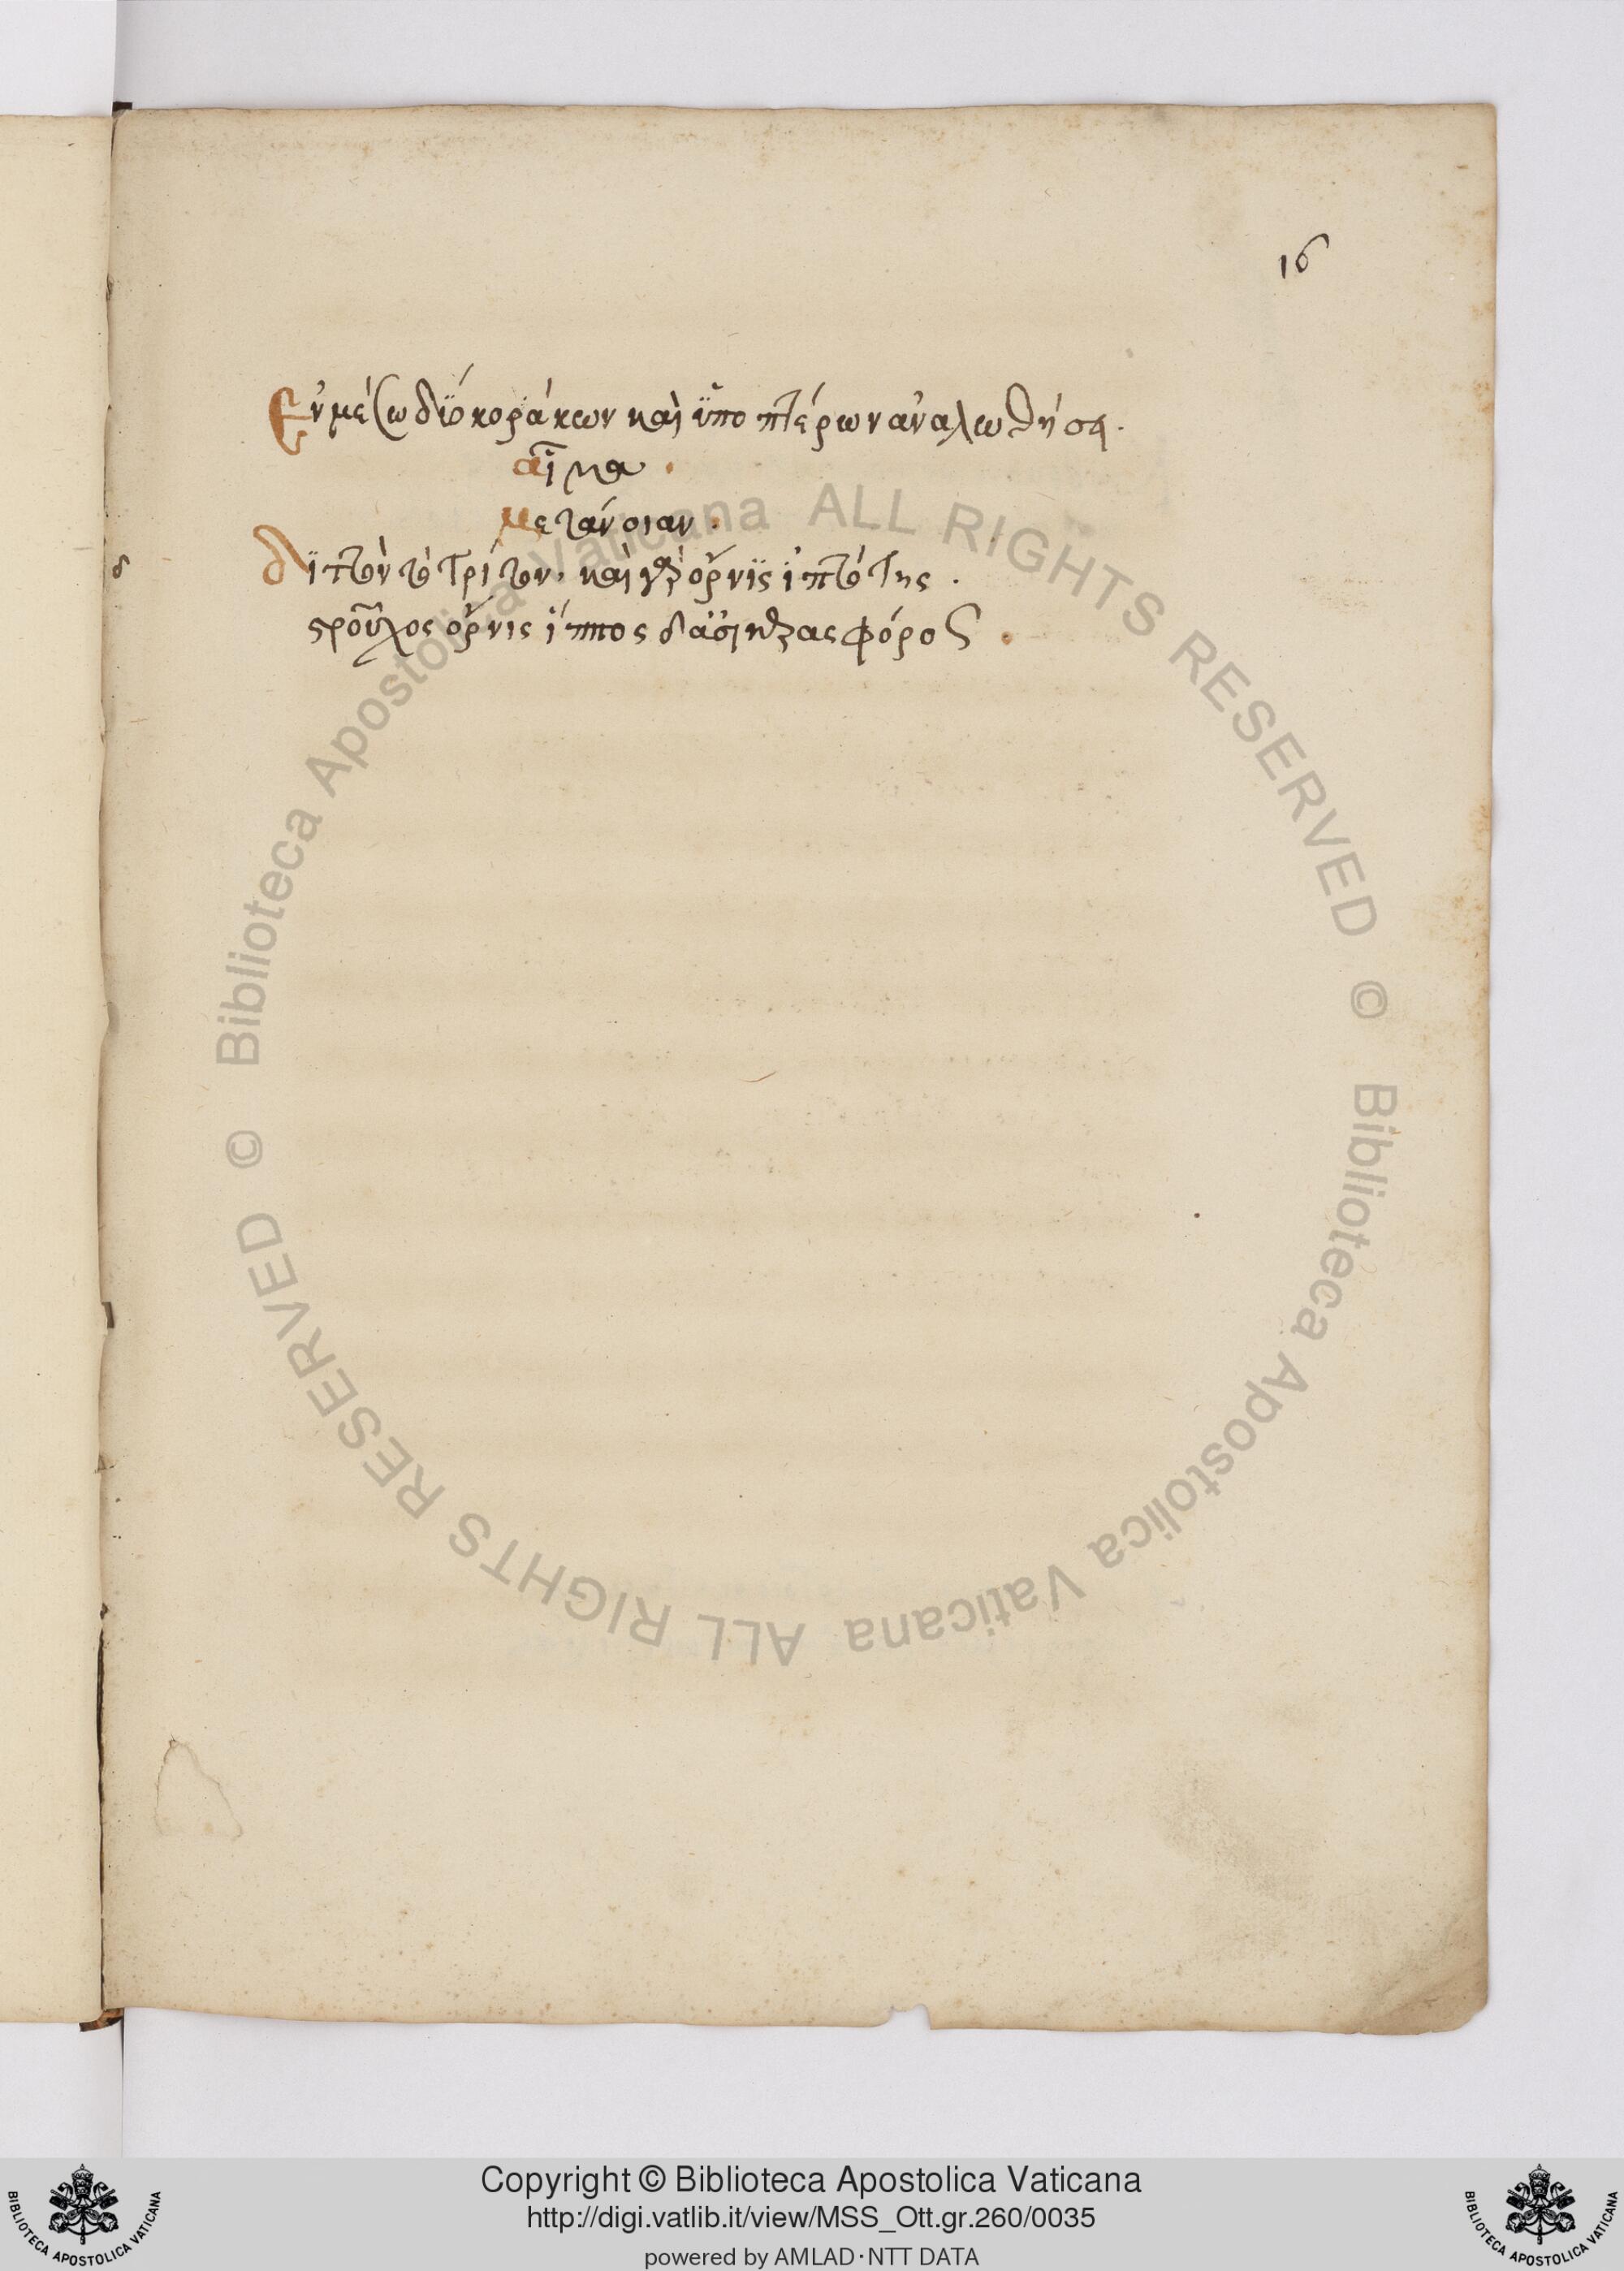 16
Ἐν μέσω δϊὸ κοράκων καὶ ϋπο πτέρων ἀναλωθήση.
αἶνα.
μετάνοιαν.
δ
δίπτὸν τὸ τρίτον, καὶ γὰρ ὄρνϊς ἱπτότης.
στροῦχος ὄρνις ἵππος δασι φόρος.
© Biblioteca Apostolica Vaticana ALL RIGHTS RESERVED
© Biblioteca Apostolica Vaticana ALL RIGHTS RESERVED
Copyright © Biblioteca Apostolica Vaticana
http://digi.vatlib.it/view/MSS_Ott.gr.260/0035
powered by AMLAD·NTT DATA
BIBLIOTECA APOSTOLICA VATICANA
BIBLIOTECA APOSTOLICA VATICANA